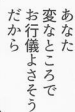 あなた
変なところで
お行儀よさそう
だから